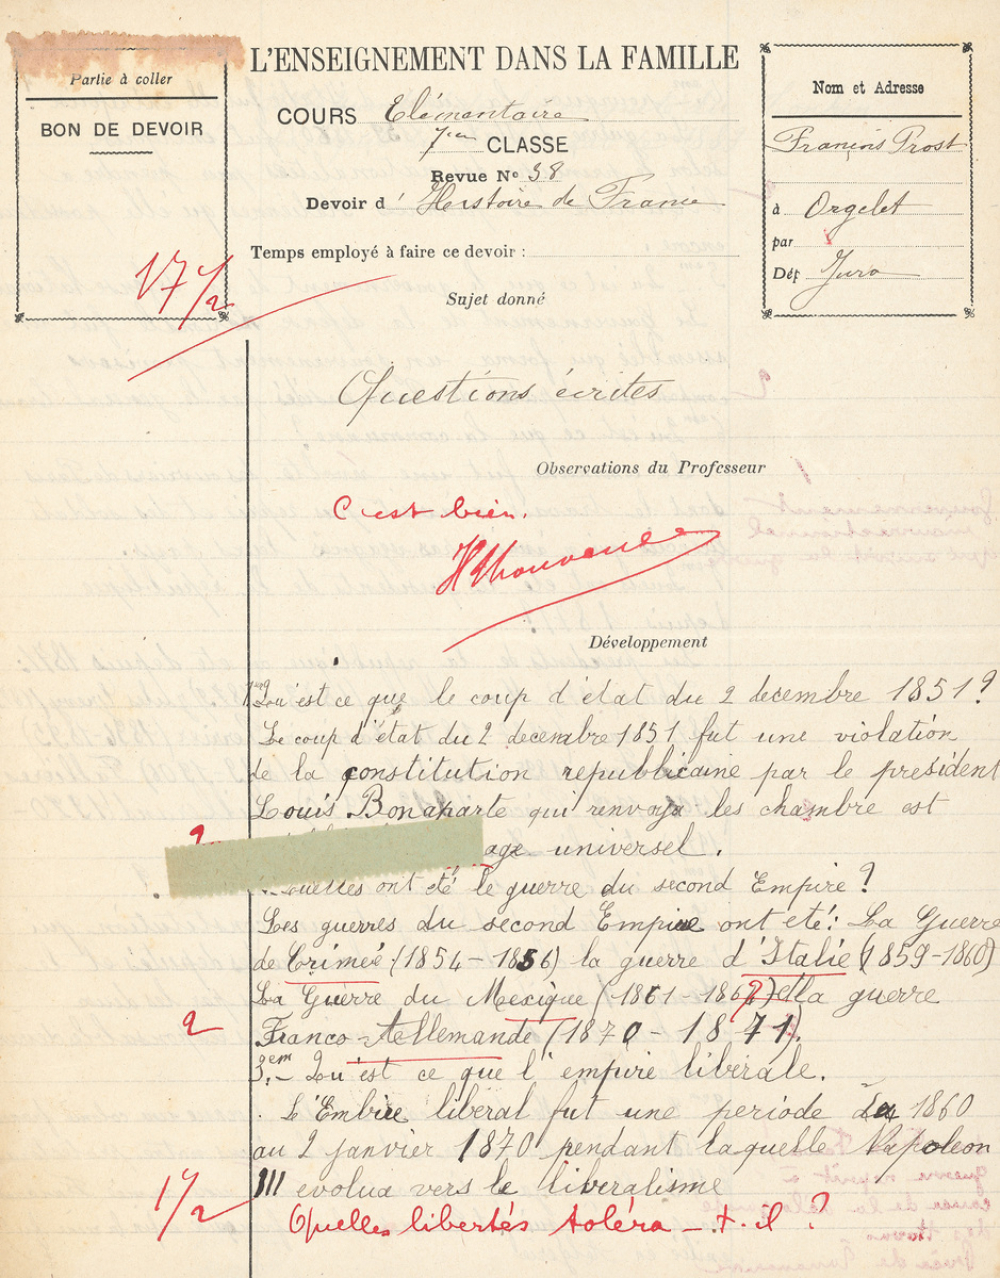 Partie à coller
BON DE DEVOIR
17 1/2
L'ENSEIGNEMENT DANS LA FAMILLE
COURS Elémentaire
7em CLASSE
Revue No 38
Devoir d' Histoire de France
Temps employé à faire ce devoir :
Sujet donné
Nom et Adresse
François Prost
à Orgelet
par
Dép Jura
Questions écrites
Observations du Professeur
C'est bien.
Développement
Qu'est ce que le coup d'état du 2 decembre 1851?
Le coup d'état du 2 decembre 1851 fut une violation
de la constitution republicaine par le président
Louis Bonaparte qui renvoya les chambre est
2
age universel.
uelles ont été le guerre du second Empire?
Les guerres du second Empire ont eté: La Guerre
de Crimeé (1854-1856) la guerre d'Italie (1859-1860)
La Guerre du Mexique (1861-1867) et la guerre
2 Franco-Allemande (1870-1871).
3em - Qu'est ce que l'empire libérale.
L'Embire libéral fut une periode du 1860
au 2 janvier 1870 pendant laquelle Napoleon
III evolua vers le liberalisme
1 1/2
Quelles libertés toléra-t-il ?